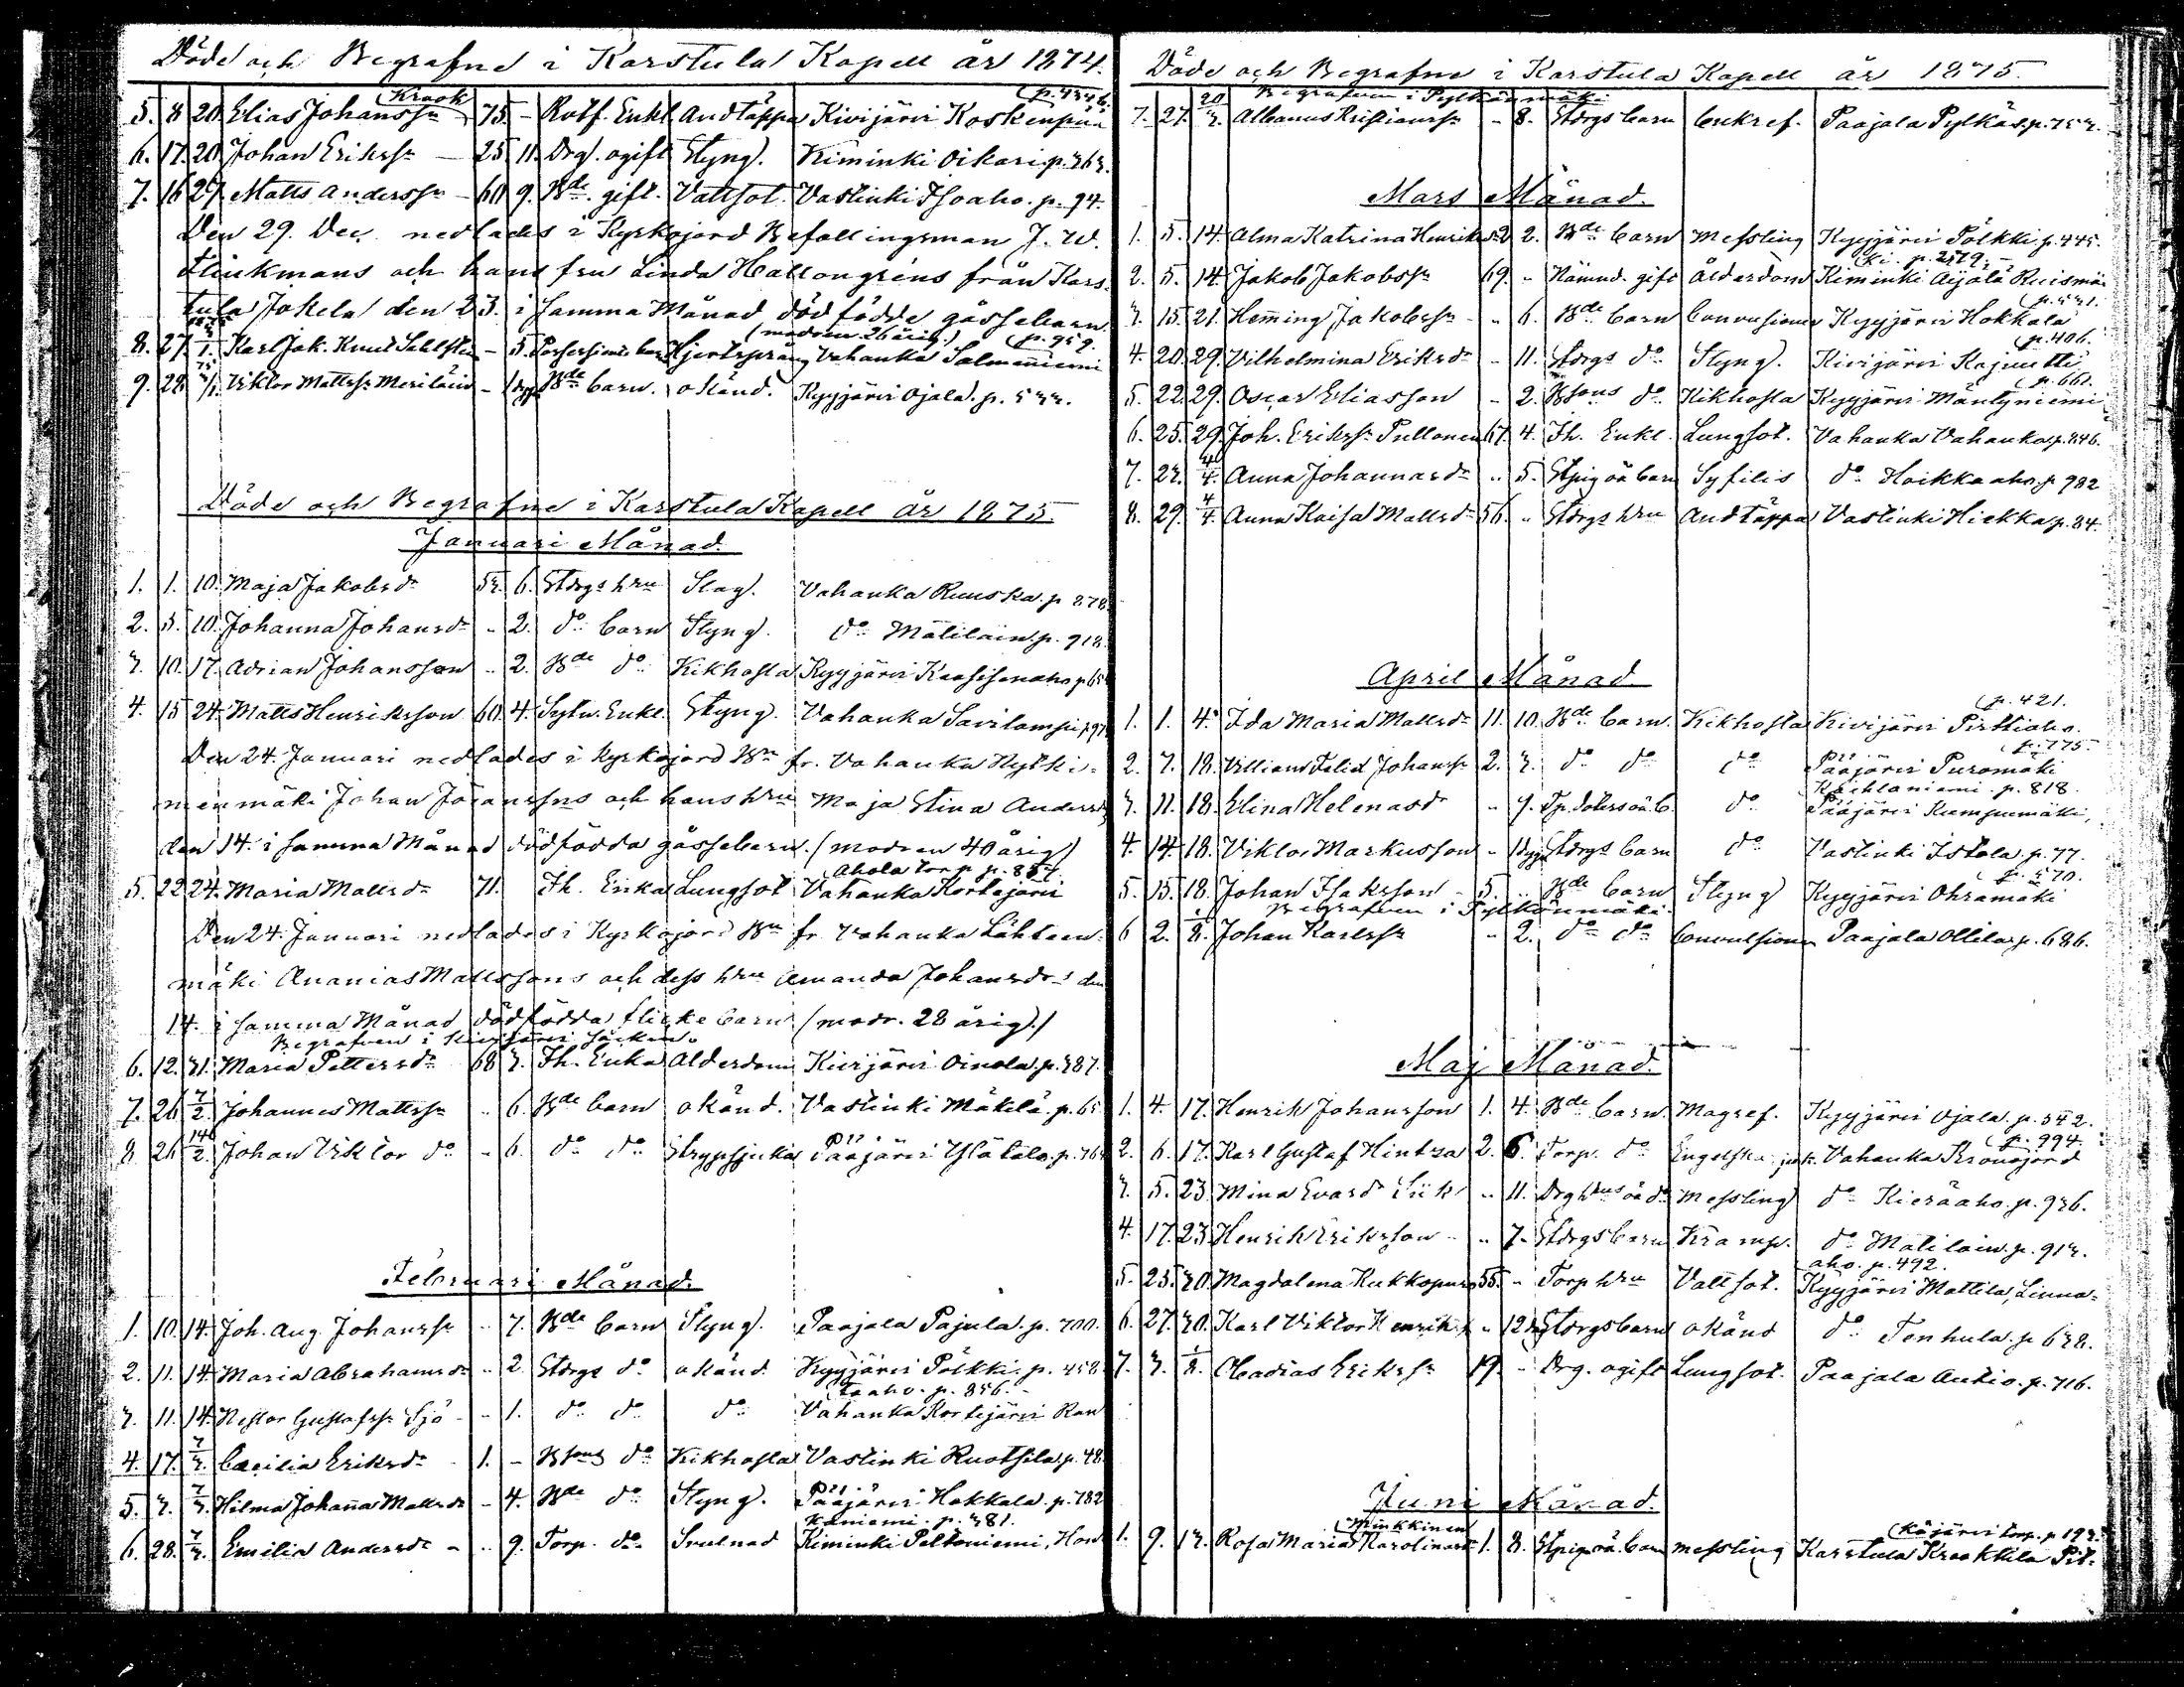 Döde och Begrafne i Karstula Kapell år 1874.
Krook (p. 434 b.
5. 8 20 Elias Johanss:n 75 - Rotf. Enkl Andtäppa Kivijärvi Koskenpää
6. 17. 20 Johan Erikss:n - 25 11. Drg. ogift Styng. Kiminki Oikari p. 363.
7. 16 27 Matts Anderss:n - 60 9. Bde gift. Vattsot. Vastinki Isoaho. p. 94.
Den 29. Dec. nedlades i Kyrkojord Befallingsman J. W.
Flinkmans och hans fru Linda Hallongréns från Kars-
tula Jokela den 23. i samma Månad död födde gossebarn.
(modren 26 årig.) (p. 959.
8. 27. Karl Jak. Knut Sahlsten - 5. barn Hjertsprång Vahanka Salmeniemi
9. 28. Viktor Mattss:n Meriläin - Bde barn. okänd. Kyyjärvi Ojala. p. 533.
Döde och Begrafne i Karstula Kapell år 1875.
Januari Månad.
1. 1. 10. Maja Jakobsd:r 53. 6. Stdrgs hru Slag. Vahanka Ruuska. p 878.
2. 5. 10. Johanna Johansd:r - 2. d:o barn Styng. d:o Mätiläin. p. 918.
3. 10. 17. Adrian Johansson .. 2. Bde d:o Kikhosta Kyyjärvi
4. 15 24. Matts Henriksson 60. 4. Sytn. Enkl. Styng. Vahanka Savilampi
Den 24. Januari nedlades i Kyrkojord Bn fr. Vahanka Hytki-
menmäki Johan Johanssns och hans hru Maja Stina Andersd
den 14. i samma Månad dödfödda gossebarn. (modren 40 årig)
Ahola torp p. 857.
5. 22 24. Maria Mattsd:r 71. Th. Enka Lungsot Vahanka Kortejärvi
Den 24. Januari nedlades i Kyrkojord Bn fr Vahanka Lähteen-
mäki Ananias Mattssons och dess hru Amanda Johansdrs den
14. i samma Månad dödfödda flickebarn (modr. 28 årig.)
Begrafven i Kivijärvi Socken.
6. 12. 31. Maria Pettersd:r 68 3. Th. Enka Alderdom Kivijärvi Oinola. p. 387.
7. 26 7/2. Johannes Mattss:n .. 6. Bde barn okänd. Vastinki Mäkelä. p. 65
8. 26 14/2. Johan Viktor d:o - 6. d:o d:o Strypsjuka Pääjärvi Ylätalo. p. 764
Februari Månad.
1. 10. 14. Joh. Aug. Johanss:n .. 7. Bde barn Styng. Paajala Pajula. p. 700.
2. 11. 14. Maria Abrahamsd:r .. 2. Stdrgs d:o okänd Kyyjärvi Pölkki. p. 458.
taaho. p. 856.
3. 11. 14. Nestor Gustafss:n Sjö - - 1. d:o d:o d:o Vahanka Kortejärvi Ran
4. 17. 7/3. Cæcilia Eriksd:r 1. - Bsons d:o Kikhosta Vastinki Ruotsila. p. 48.
5. 3. 7/3. Hilma Johanna Mattsd:r - 4. Bde d:o Styng. Pääjärvi Hokkala. p. 782
kaniemi. p. 381.
6. 28. 7/3. Emilia Andersd:r - .. 9. Torp. d:o Svulnad Kiminki Peltoniemi, Hon
Döde och Begrafne i Karstula Kapell år 1875.
Begrafven i Pylkönmäki
7. 27. 20/3. Albanus Kristianss:n - 8. Stdrgs barn Enkref. Paajala Pylkäs. p. 753.
Mars Månad.
1. 5. 14. Alma Katrina Henriksd 2 2. Bde barn Messling Kyyjärvi Pölkki p. 445.
ki. p. 279.
2. 5. 14. Jakob Jakobss:n 69. .. Nämnd. gift Ålderdom Kiminki Äijälä Ruismä
(p. 531.
3. 15. 21. Hemming Jakobss:n .. 6. Bde barn Convusioner Kyyjärvi Hokkala
(p. 406.
4. 20. 29. Vilhelmina Eriksd:r - 11. Stdrgs d:o Styng. Kivijärvi Kojuutti
(p. 661.
5. 22. 29. Oscar Eliasson - 2. Bsons d:o Kikhosta Kyyjärvi Mäntyniemi
6. 25. 29. Joh. Erikss:n Pullonen 67. 4. Th. Enkl. Lungsot. Vahanka Vahanka p. 846.
7. 23. 4/4. Anna Johannasd:r .. 5. Stpig oä barn Syfilis d:o Hoikkaaho. p 982
8. 29. 4/4. Anna Kaisa Mattsd:r 56. .. Stdrgs hru Andtäppa Vastinki Hiekka p. 84.
April Månad
(p. 421.
1. 1. 4. Ida Maria Mattsd:r 11. 10. Bde barn. Kikhosta Kivijärvi Pirttiaho.
(p. 775.
2. 7. 18. Villiam Felix Johanss:n 2. 3. d:o d:o d:o Pääjärvi Puromäki
Kachlaniemi. p. 818.
3. 11. 18. Elina Helenasd:r .. 9. Tp. doters oä. b. d:o Pääjärvi Kumpumäki,
4. 14. 18. Viktor Markusson - Stdrgs barn d:o Vastinki Istola. p. 77.
(p. 570.
5. 15. 18. Johan Isaksson - 5. .. Bde barn Styng Kyyjärvi Ohramäki
Begrafven i Pylkönmäki.
6 2. 1/8. Johan Karlss:n .. 2. d:o d:o Convulsioner Paajala Ollila. p. 686.
Maj Månad.
1. 4. 17. Henrik Johansson 1. 4. Bde barn. Magref. Kyyjärvi Ojala. p. 542.
(p. 994.
2. 6. 17. Karl Gustaf Hintza 2. 6. Torp. d:o Engelska sjuk. Vahanka Kronojord
3. 5. 23. Mina Evasd:r Siik .. 11. Drg hrus oä d:o Messling d:o Kieräaho. p. 936.
4. 17. 23. Henrik Eriksson - .. 7. Stdrgs barn Kramp. d:o Mätiläin. p. 913.
aho. p. 492.
5. 25. 30. Magdalena Kukkopuro 55. - Torp hru Vattsot. Kyyjärvi Mattila, Linna-
6. 27. 30. Karl Viktor Henriks .. 12 Stdrgs barn okänd d:o Tenhula. p 638.
7. 3. 1/8. Obadias Erikss:n 19. - Drg. ogift Lungsot. Paajala Autio. p. 716.
Juni Månad.
(Minkkinen (käjärvi torp. p 193.
1. 9. 13. Rosa Maria Karolinasd 1. 8. Stpig. oä. barn messling Karstula Kraakkila Pit-